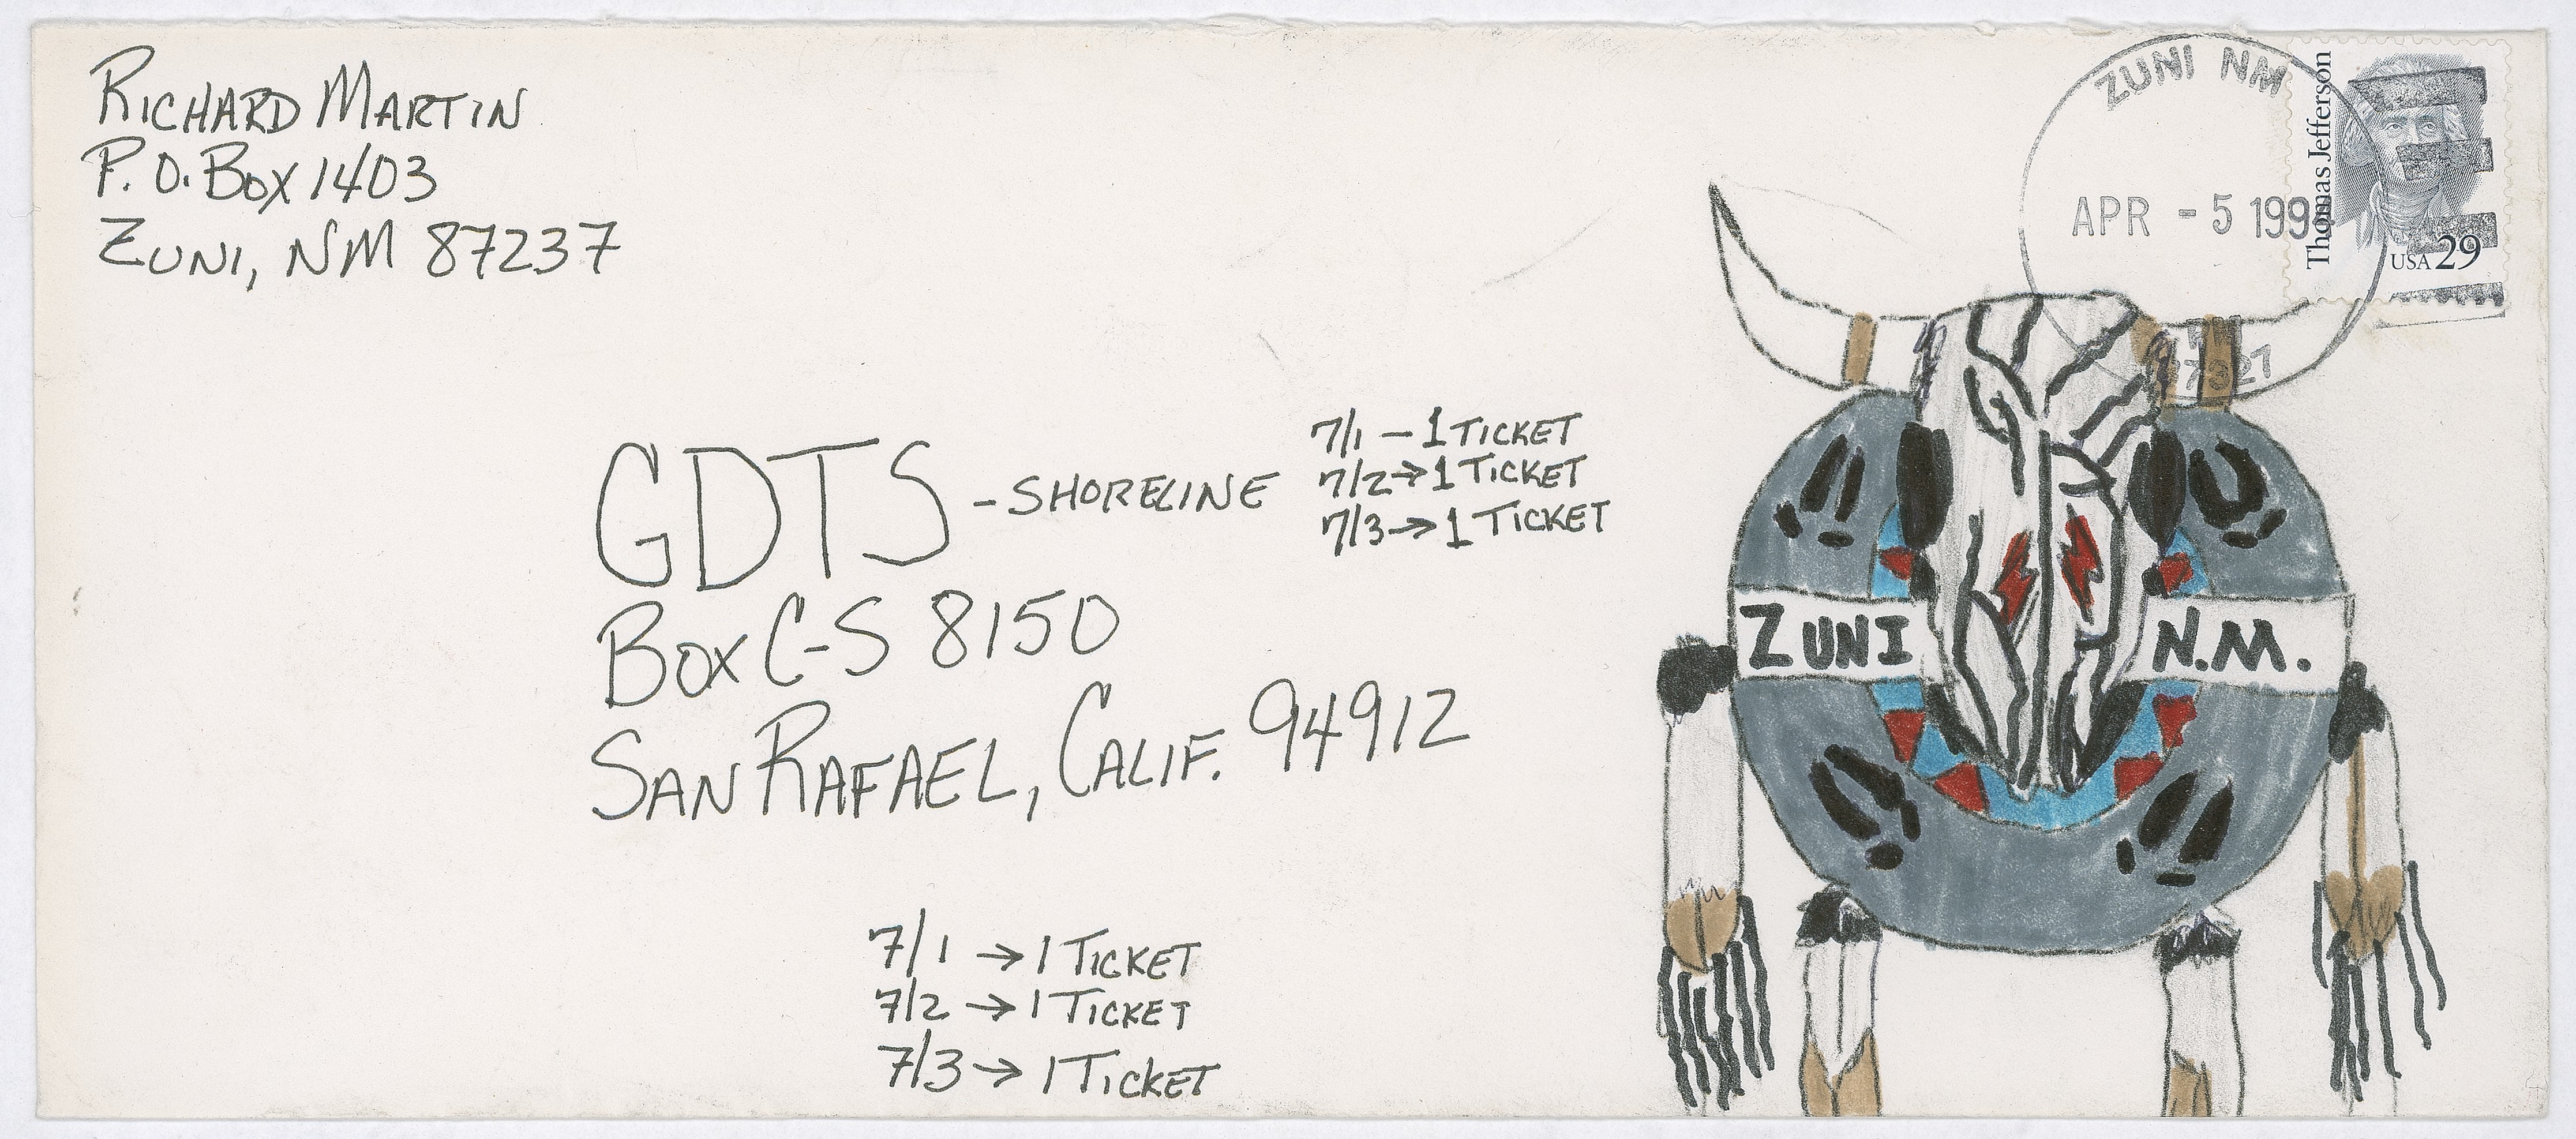 RICHARD MARTIN
P.O. BOX 1403
ZUNI, NM 87237
ZUNI NM
APR - 5 199
Thomas Jefferson
USA 29
GDTS - SHORELINE
7/1 — 1 TICKET
7/2 → 1 TICKET
7/3 → 1 TICKET
BOX C-S 8150
SAN RAFAEL, CALIF. 94912
ZUNI N.M.
7/1 → 1 TICKET
7/2 → 1 TICKET
7/3 → 1 TICKET